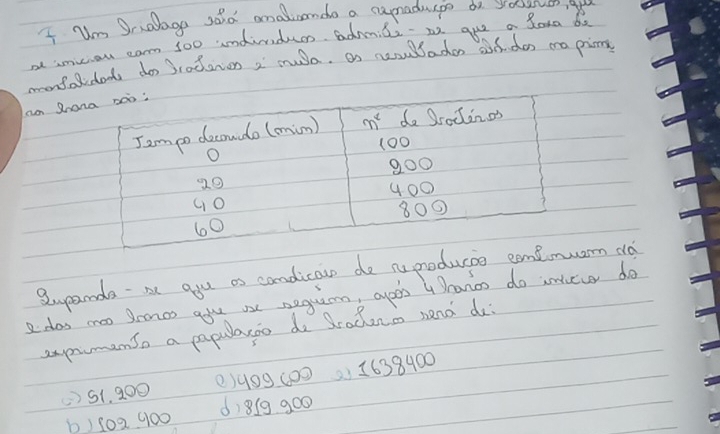 Um Biólogo está analisando a reprodução de bactérias, que
se iniciou com 100 indivíduos. admite-se que a taxa de
mortalidade das bactérias é nula. os resultados na prime
ra hora são:
Tempo decorrido (min) nº de Bactérias
0 100
20 200
40 400
60 800
Supondo-se que as condições de reprodução continuem
nas horas que se seguem, após 4 horas do início do
experimento a população de bactérias será de:
a) 51.200 c) 409 600 e) 1638400
b) 102 400 d) 819 200